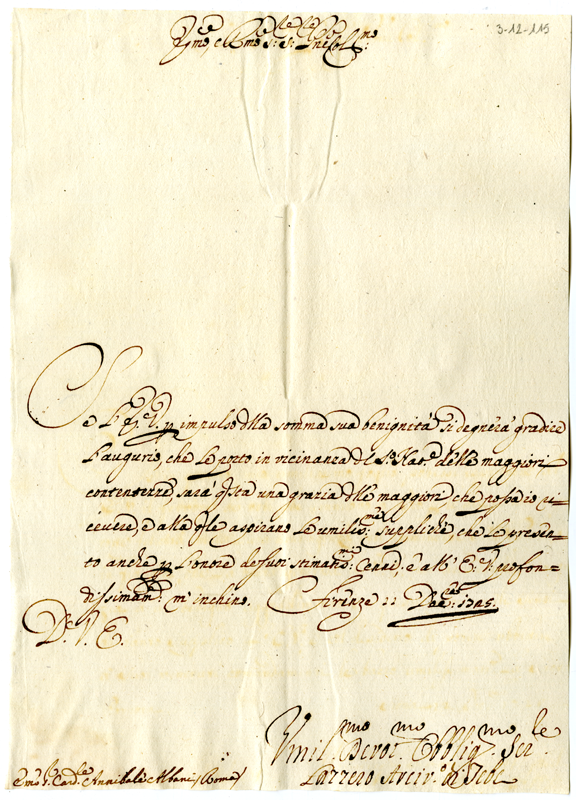 3-12-115
Em͞o, e Rm͞o Sig: Sig: Pne Col:mo
Se l'E. V. p impulso dlla somma sua benignità si degnerà gradire
l'augurio, che Le porto in vicinanza del Sº. Nat.e delle maggiori
contentezze, sarà qsta una grazia dlle maggiori che possa io ri=
cevere, e alle qle aspirano le umiliss:me suppliche, che Le presen=
to anche p l'onore de suoi stimatis:mi Cenni; e all' E. V. profon=
dissimam:te m'inchino. Firenze 11 Dec:
D. V. E.
Umil:mo Devot:mo Obblig:mo Ser:re
Arciv:
Emo Sig. Card.le Annibale Albani (Roma)